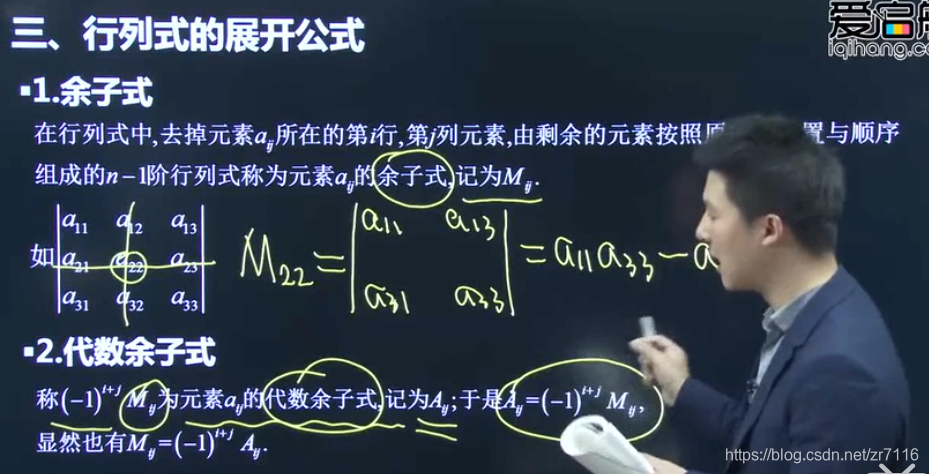 三、行列式的展开公式
爱启航
iqihang.co
▪1.余子式
在行列式中,去掉元素aᵢⱼ所在的第i行,第j列元素,由剩余的元素按照原 置与顺序
组成的n−1阶行列式称为元素aᵢⱼ的余子式,记为Mᵢⱼ.
如
a₁₁ a₁₂ a₁₃
a₂₁ a₂₂ a₂₃
a₃₁ a₃₂ a₃₃
M₂₂ = | a₁₁ a₁₃ | = a₁₁a₃₃ − a
a₃₁ a₃₃
▪2.代数余子式
称(−1)ⁱ⁺ʲMᵢⱼ为元素aᵢⱼ的代数余子式,记为Aᵢⱼ;于是Aᵢⱼ=(−1)ⁱ⁺ʲMᵢⱼ,
显然也有Mᵢⱼ=(−1)ⁱ⁺ʲAᵢⱼ.
https://blog.csdn.net/zr7116